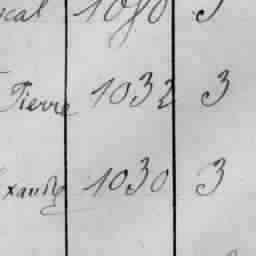 scal 1080 3
Pierre 1032 3
xandre 1030 3